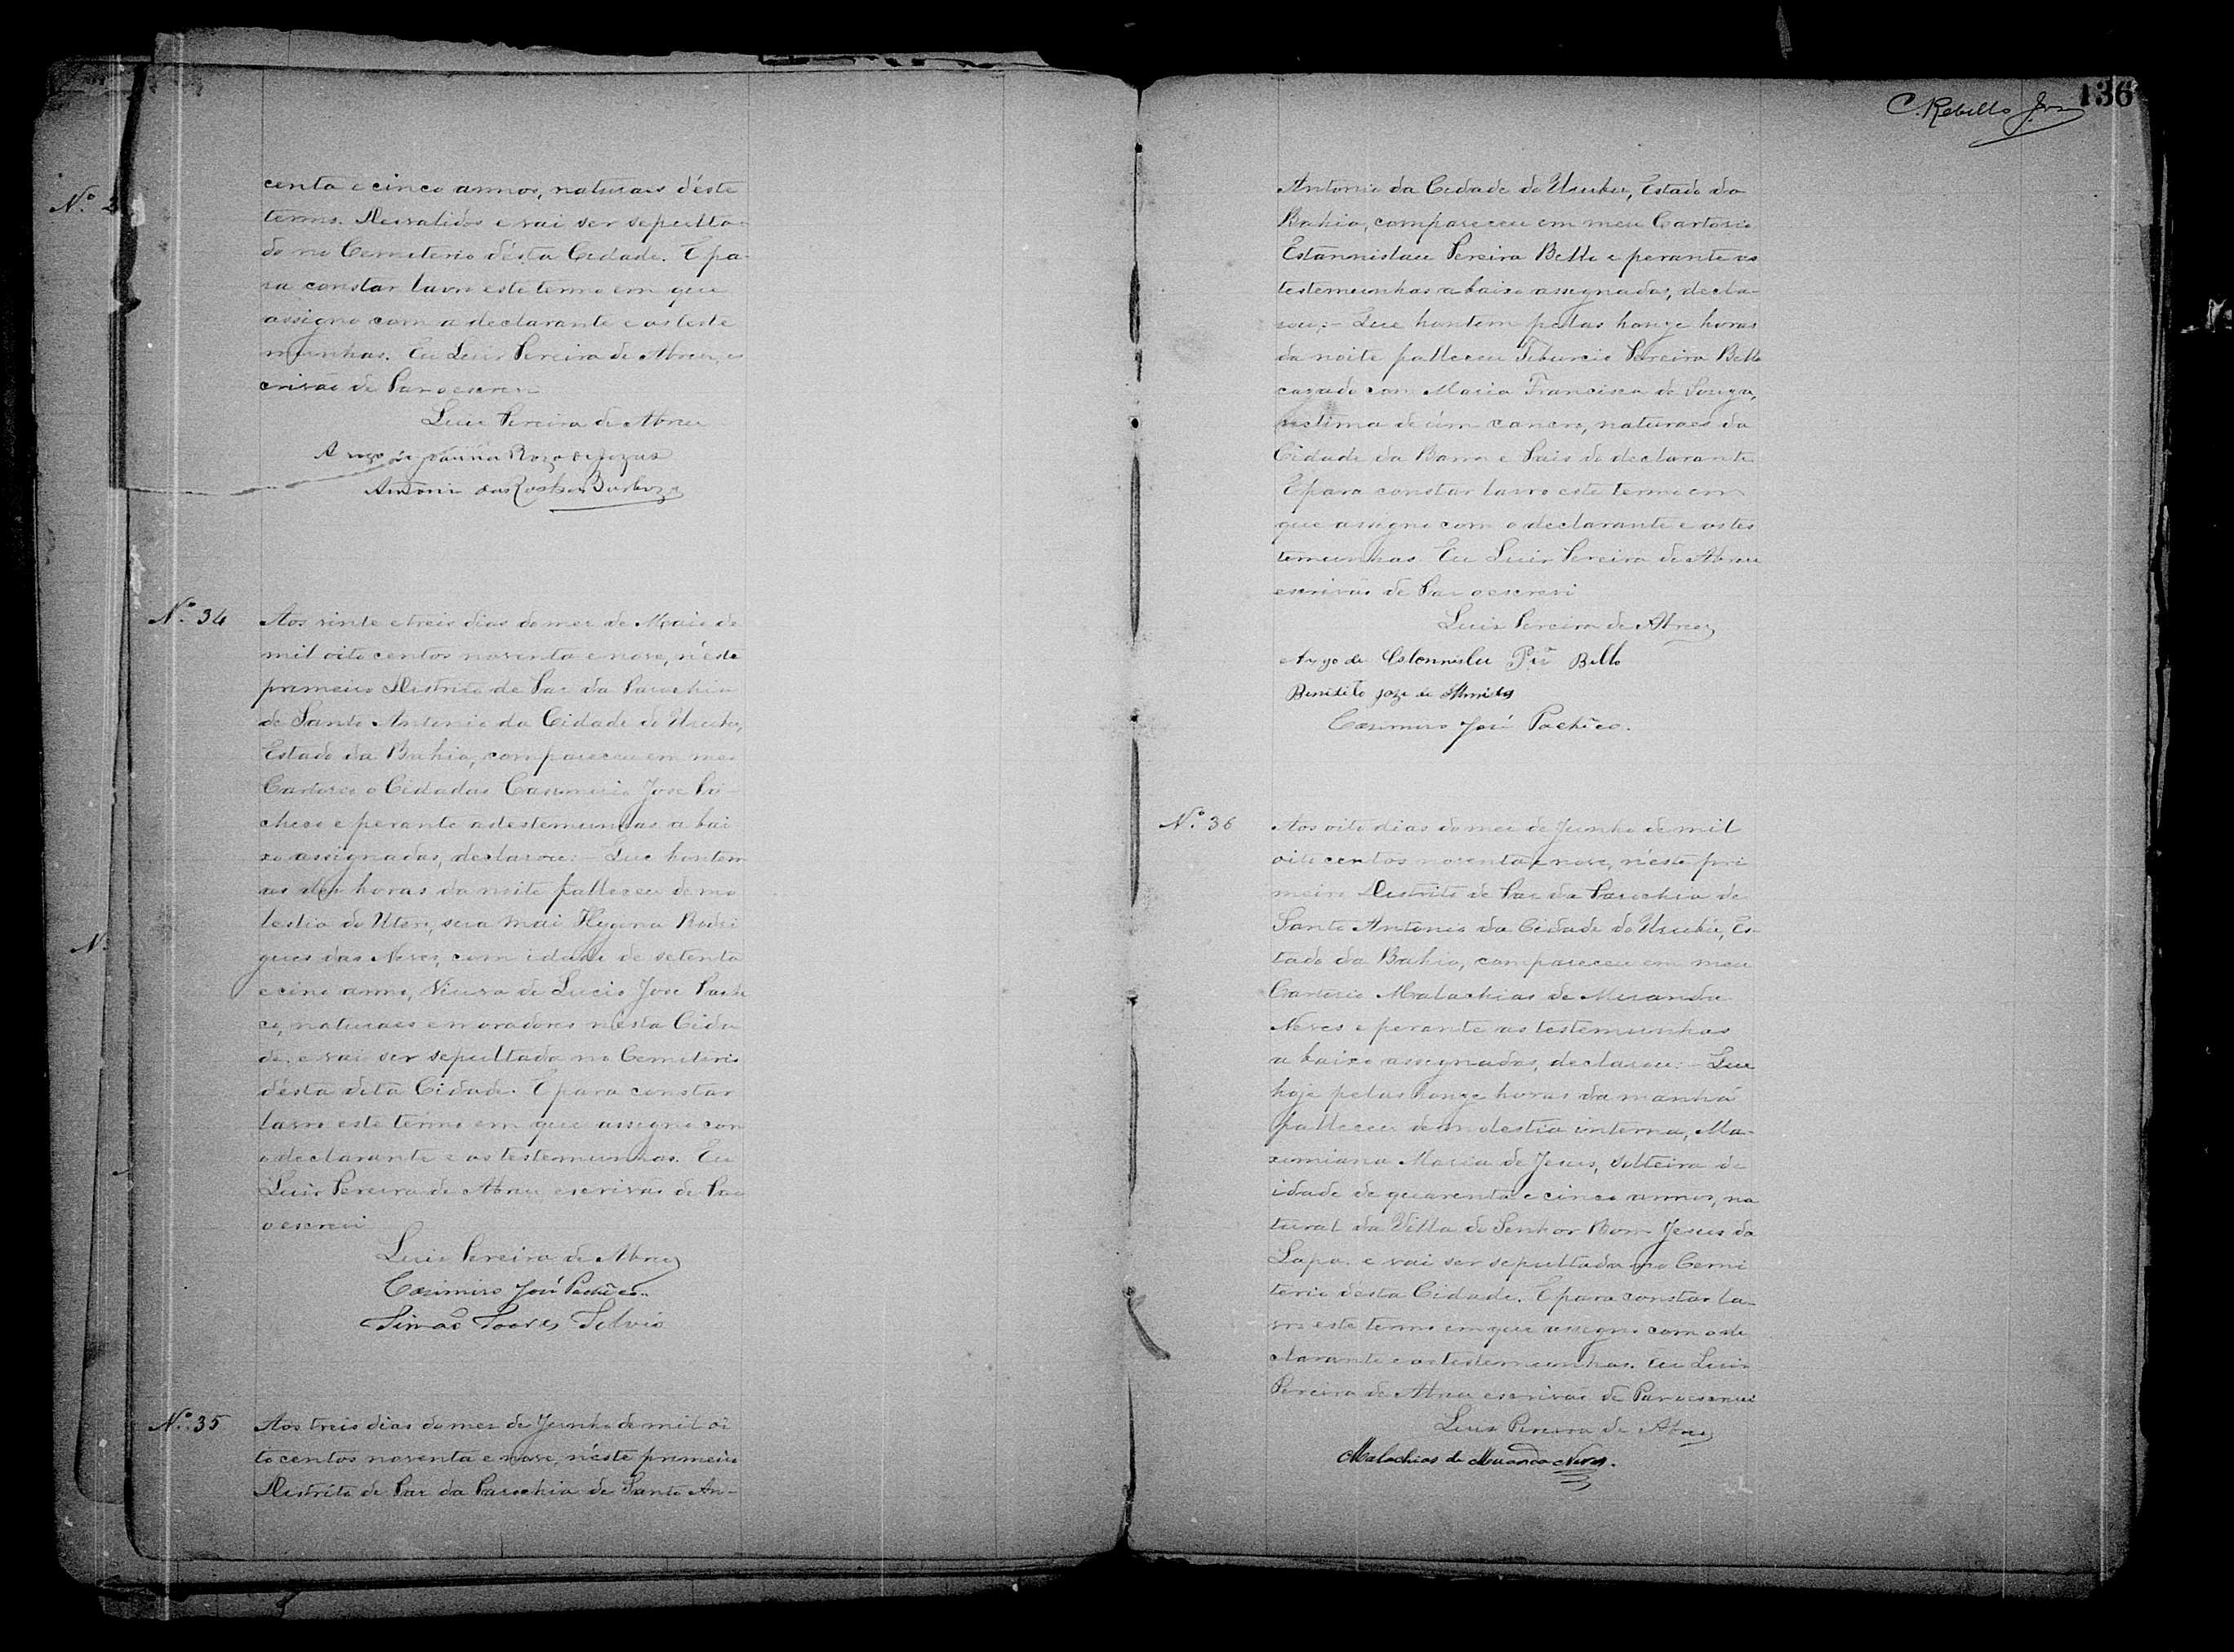 centa e cinco annos, naturaes d'éste
termo. e vai ser sepulta-
do no Cemiterio désta Cidade. E pa-
ra constar lavro este termo em que
assigno com a declarante e as teste
munhas. Eu Luis Pereira de Abreu, es
crivão de Paz o escrevi
Luis Pereira de Abreu
A rogo de Rosa de Jezus
Antonio das Barboza
Nº 34
Aos vinte e treis dias do mez de Maio de
mil oito centos noventa e nove, n'éste
primeiro Districto de Paz da Parochia
de Santo Antonio da Cidade do Urubu,
Estado da Bahia, compareceu em meu
Cartorio o Cidadão Casimirio Jose Pa-
checo e perante as testemunhas a bai
xo assignadas, declarou: - Que hontem
as dez horas da noite falleceu de mo
lestia do Utero, sua Mãi Hygena Rodri
gues das Neves, com idade de setenta
e cinc annos, Viuva de Lucio Jose Pache
co, naturaes e moradores n'ésta Cida
de, e vai ser sepultada no Cemiterio
désta dita Cidade. E para constar
lavro este termo em que assigno con
o declarante e as testemunhas. Eu
Luis Pereira de Abreu escrivão de Paz
o escrevi
Luis Pereira de Abreu
Casimiro José Pachêco.
Simaõ Soares
Nº 35
Aos treis dias do mez de Junho de mil oi
to centos noventa e nove, n'éste primeiro
Districto de Paz da Parochia de Santo An-
C. Rebello Jor
136
Antonio da Cidade do Urubu, Estado da
Bahia, compareceu em meu Cartorio
Estannislau Pereira Bello e perante as
testemunhas a baixo assignadas, decla-
rou: - Que hontem pelas honze horas
da noite falleceu Tiburcio Pereira Bello
cazado com Maria Francisca de Souza,
victima de úm cancro, naturaes da
Cidade da Barra e Pais do declarante
E para constar lavro este termo em
que assigno com o declarante e as tes
temunhas. Eu Luis Pereira de Abreu
escrivão de Paz o escrevi
Luis Pereira de Abreu
Arogo de Estannislu Prª Bello
Benidito Joze de Almeida
Casimiro José Pachêco.
Nº 36
Aos oito dias do mez de Junho de mil
oito centos noventa e nove, n'éste pri
meiro Districto de Paz da Parochia de
Santo Antonio da Cidade do Urubú, Es-
tado da Bahia, compareceu em meu
Cartorio Malachias de Miranda
Neves e perante as testemunhas
a baixo assignadas, declarou: - Que
hoje pelas honze horas da manhã
falleceu de molestia interna, Ma-
ximiana Maria de Jesus, solteira de
idade de quarenta e cinco annos, na
tural da Villa do Senhor Bom Jesus da
Lapa. e vai ser sepultada no Cemi
terio désta Cidade. E para constar la-
vro este termo em que assigno com o de
clarante e as testemunhas. Eu Luis
Pereira de Abreu escrivão de Paz o escrevi
Luis Pereira de Abreu
Malachias de Miranda Neves.